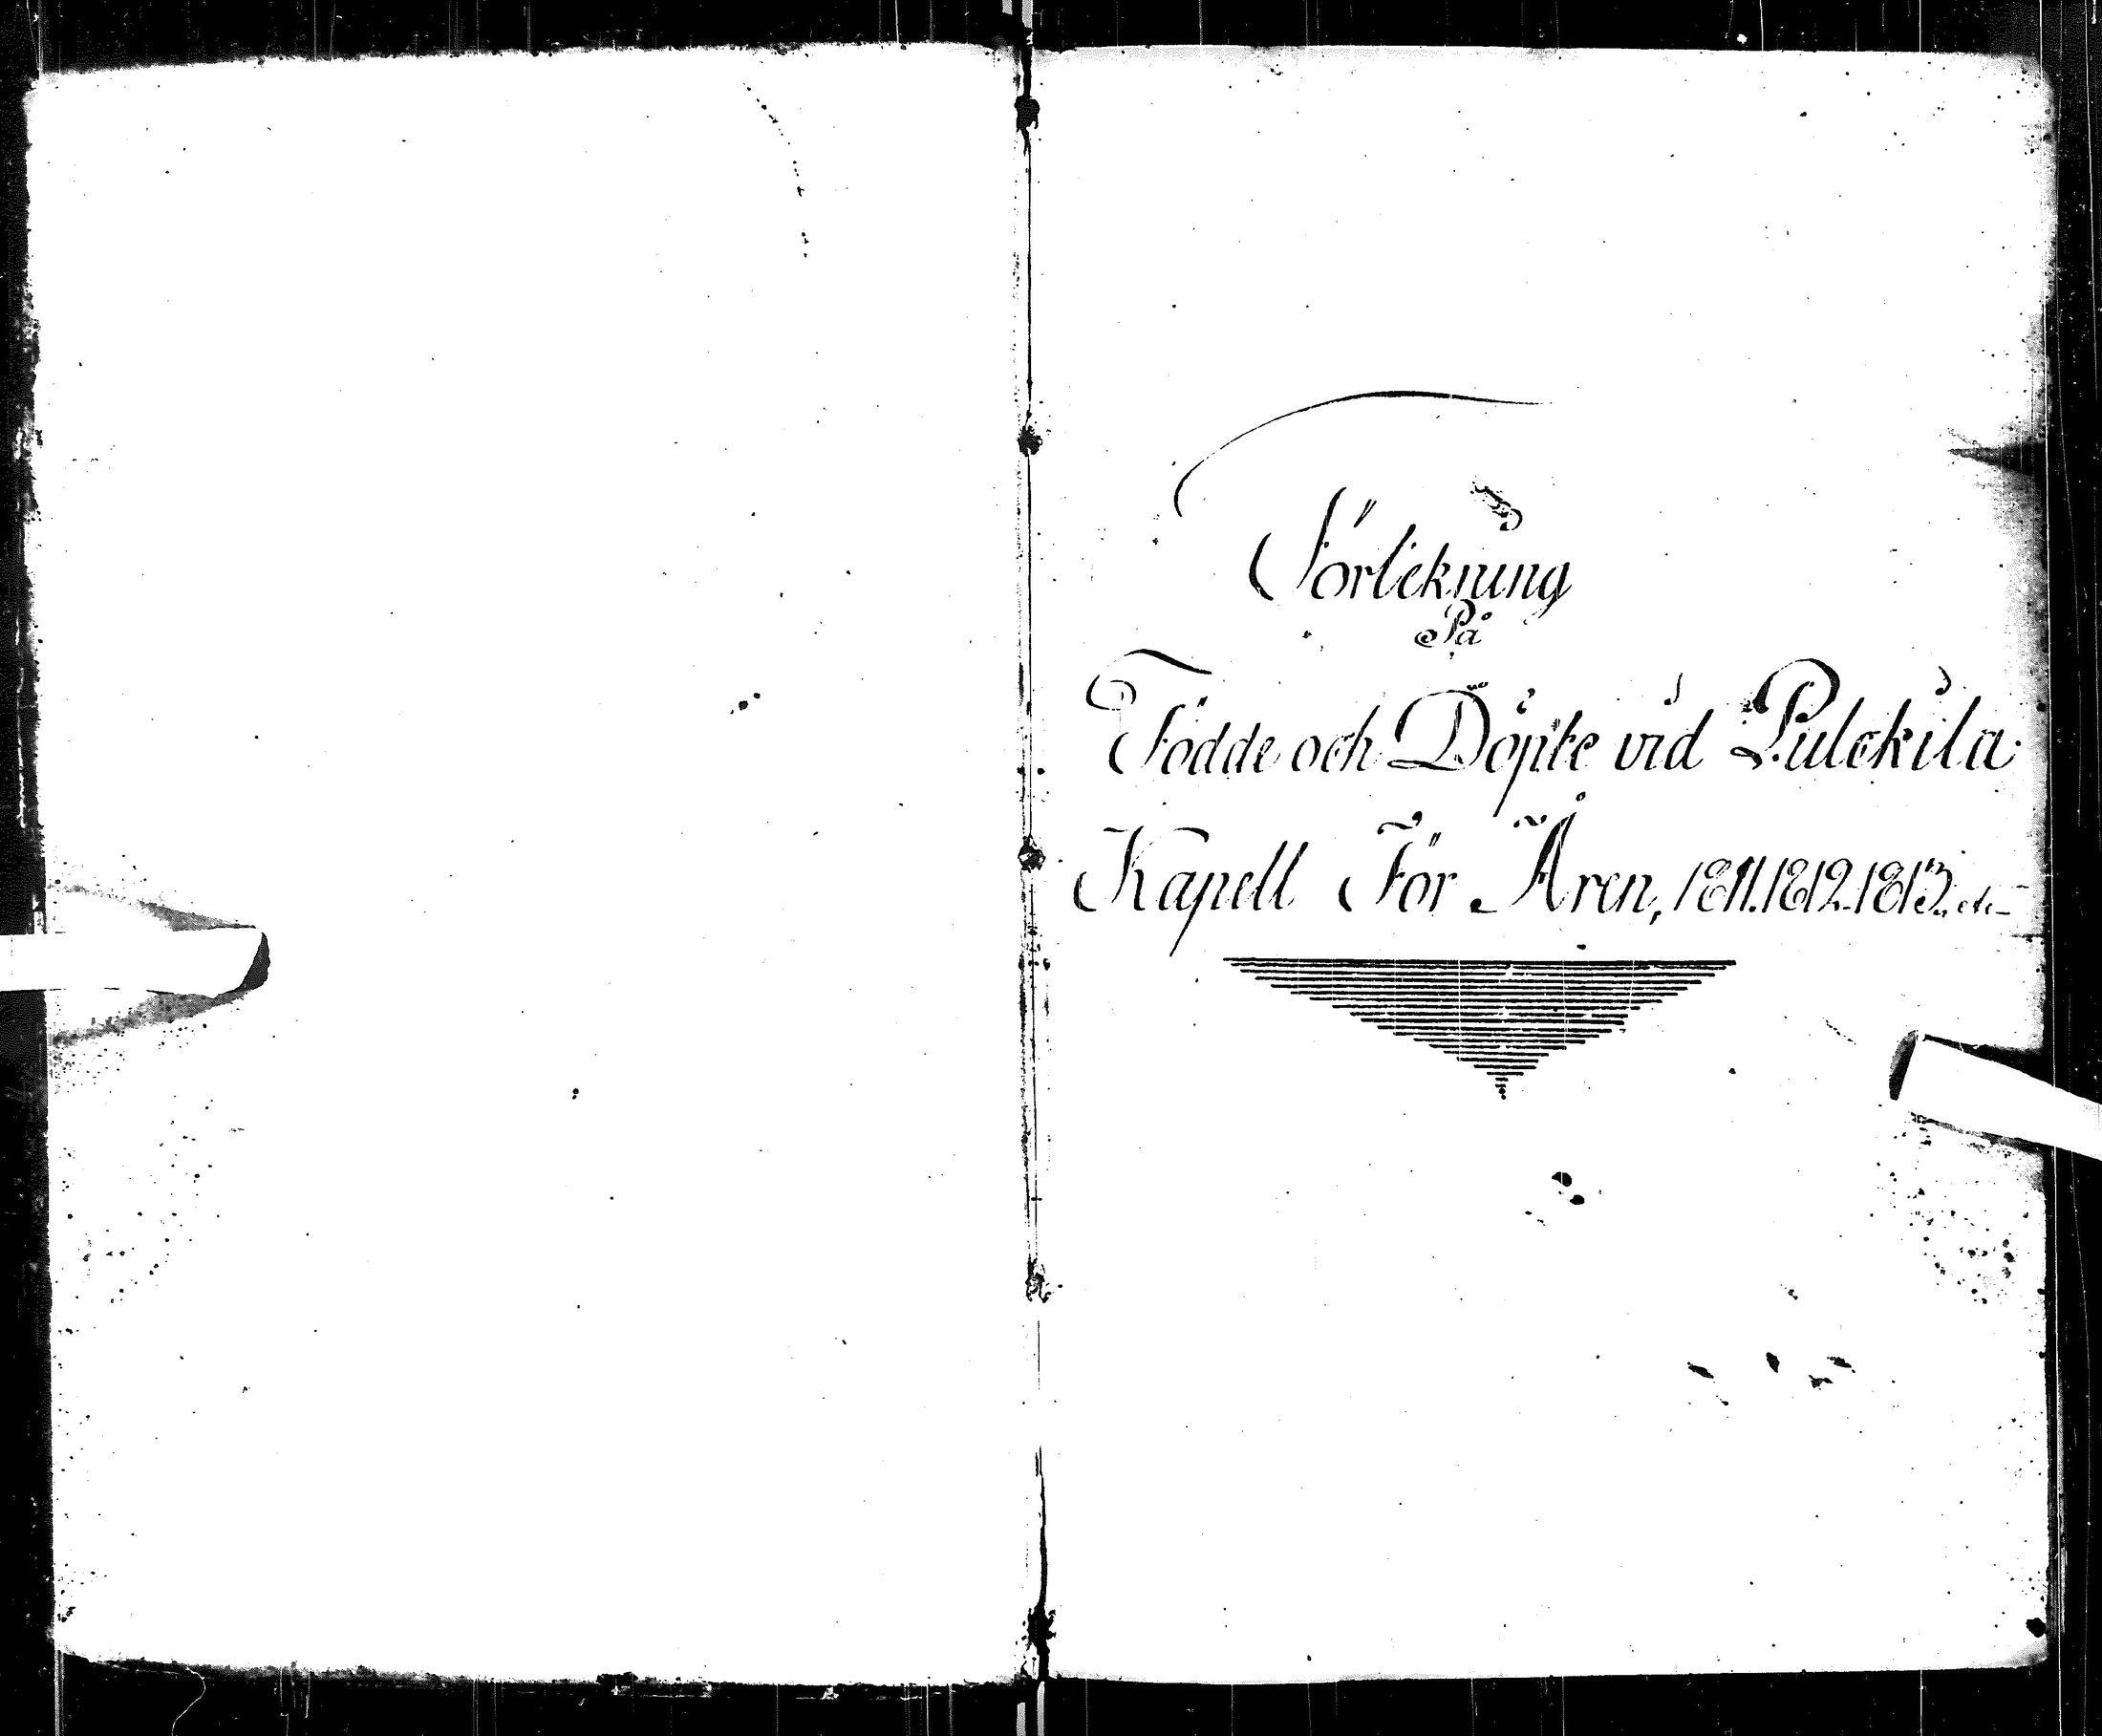 Förtekning
På
Födde och Döpte vid Pulckila
Kapell För Åren, 1811.1812.1813. etc